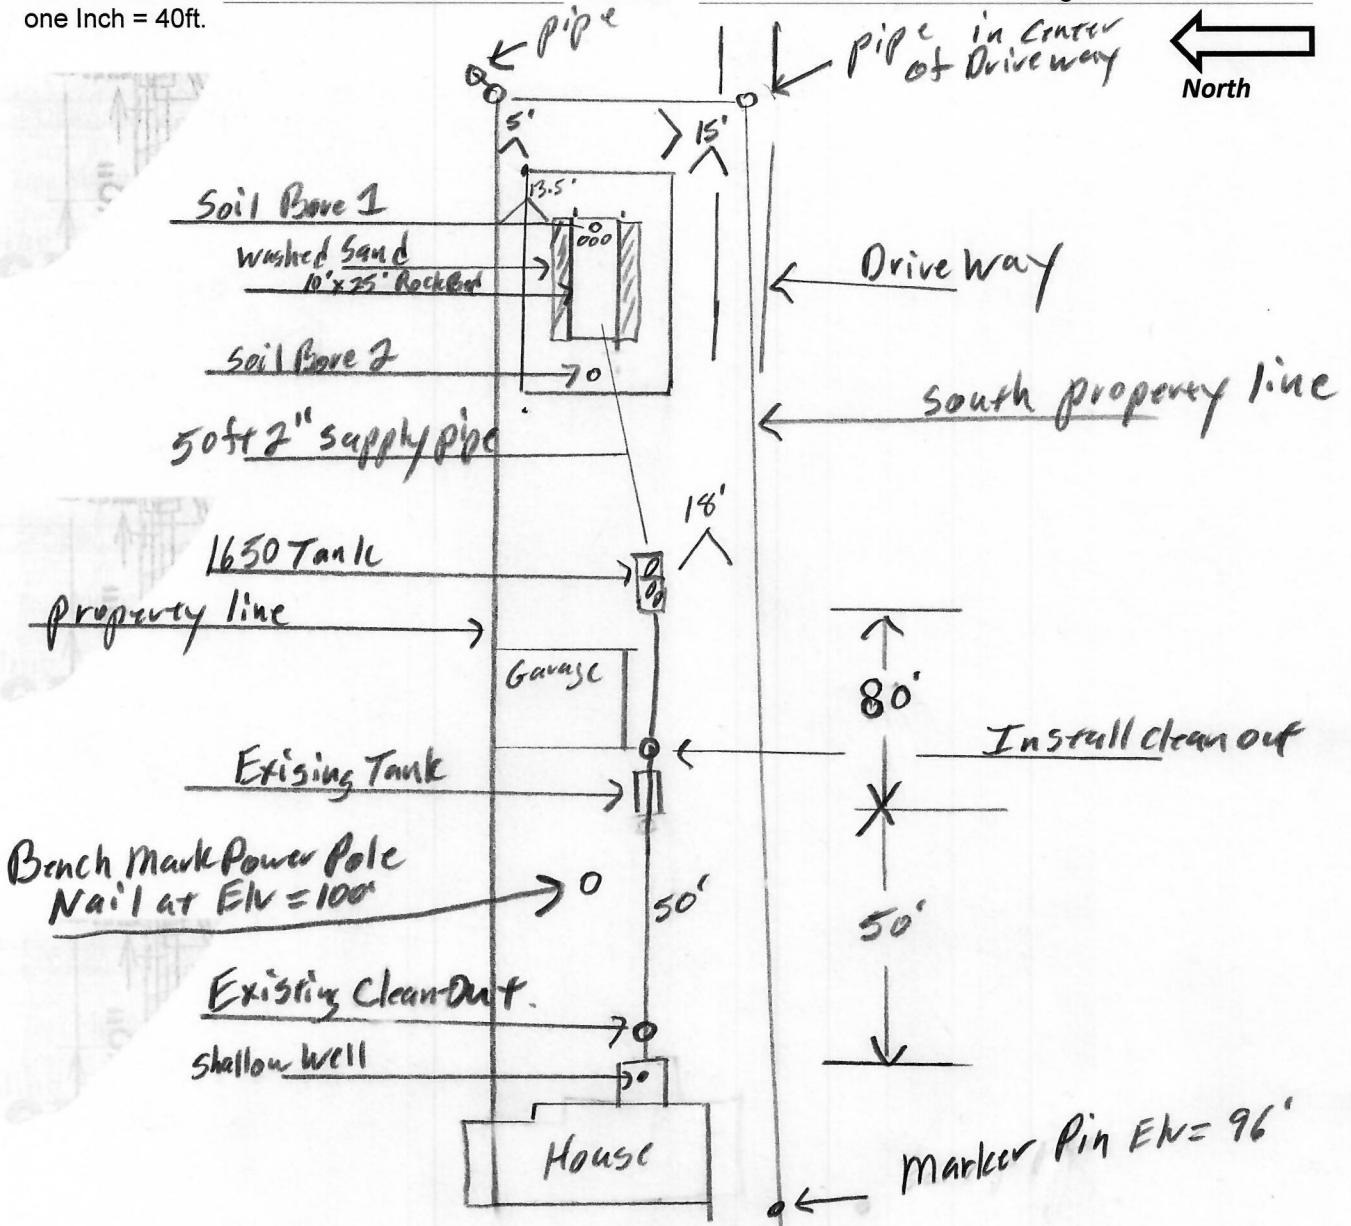 one Inch = 40ft.
pipe
pipe in Center
of Driveway
North
5'
15'
13.5'
Soil Bore 1
washed Sand
10'x25' Rock Bed
Drive Way
Soil Bore 2
South property line
50ft 2" supply pipe
18'
1650 Tank
property line
Garage
80'
Install clean out
Exising Tank
Bench Mark Power Pole
Nail at Elv = 100'
50'
50'
Existing Clean-Out.
Shallow Well
House
Marker Pin Elv = 96'